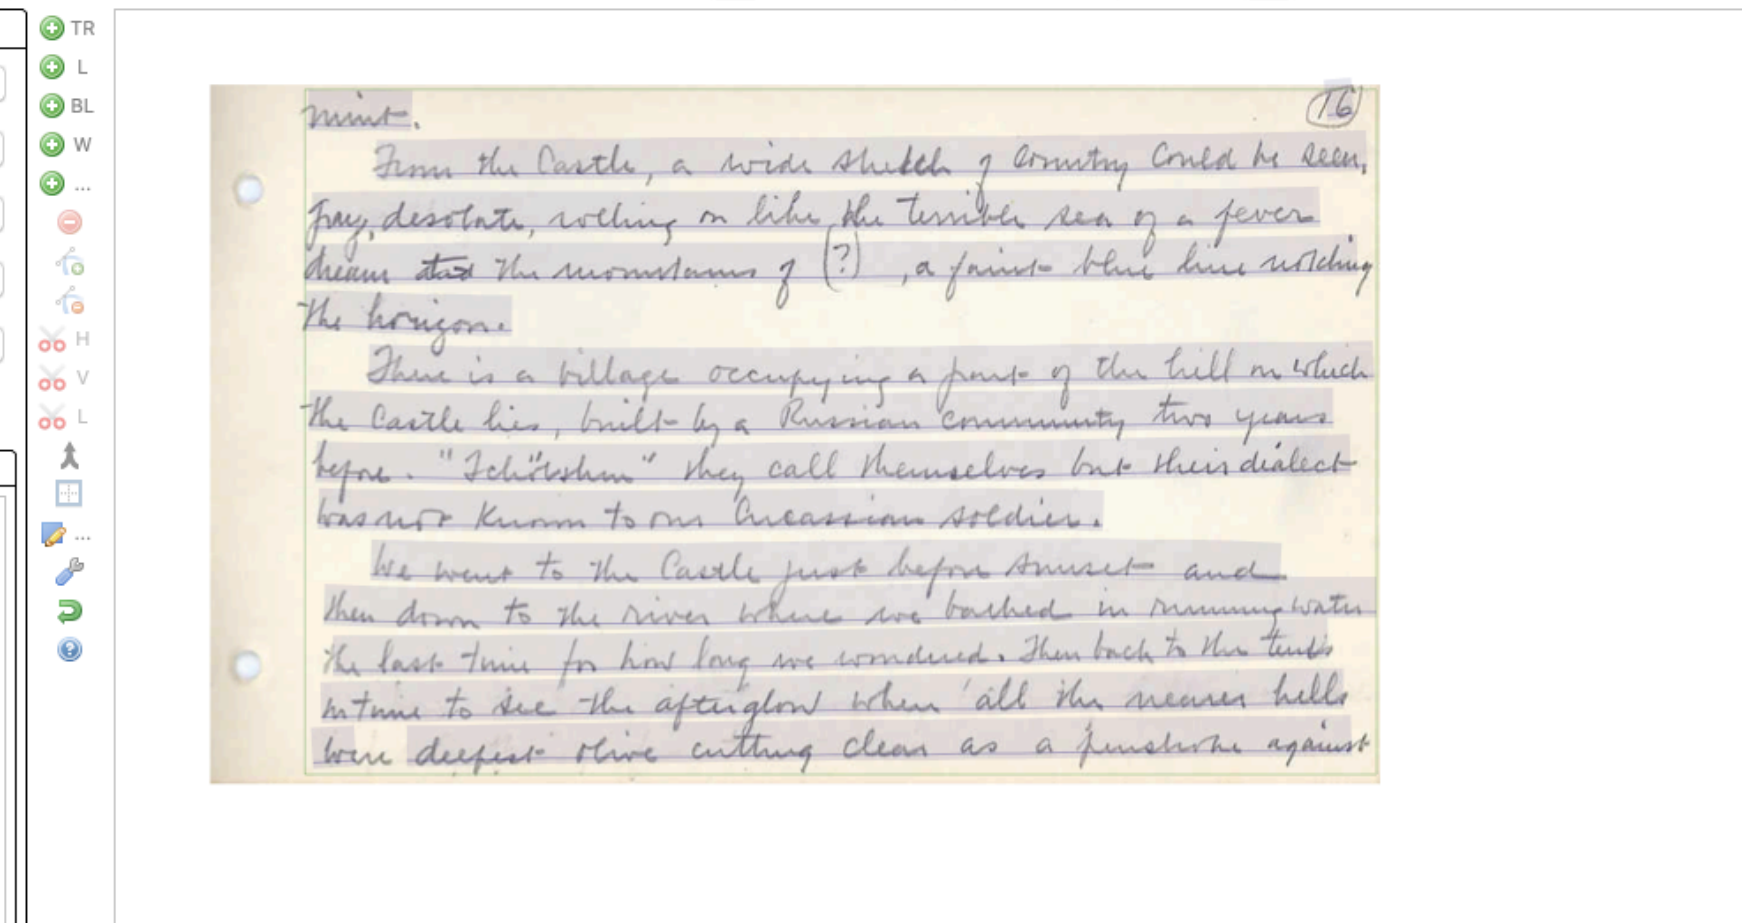 TR
L
BL
W
...
H
V
L
...
16
mint.
From the Castle, a wide stretch of Country Could be seen,
gray, desolate, rolling on like the terrible sea of a fever
dream and the mountains of (?) , a faint blue line notching
the horizon.
There is a village occupying a part of the hill on which
the Castle lies, built by a Russian Community two years
before. " " they call themselves but their dialect
was not known to our Circassian soldier.
We went to the Castle just before sunset and
then down to the river where we bathed in running water
the last time for how long we wondered. Then back to the tents
in time to see the afterglow when all the nearer hills
were deepest olive cutting clear as a penstroke against